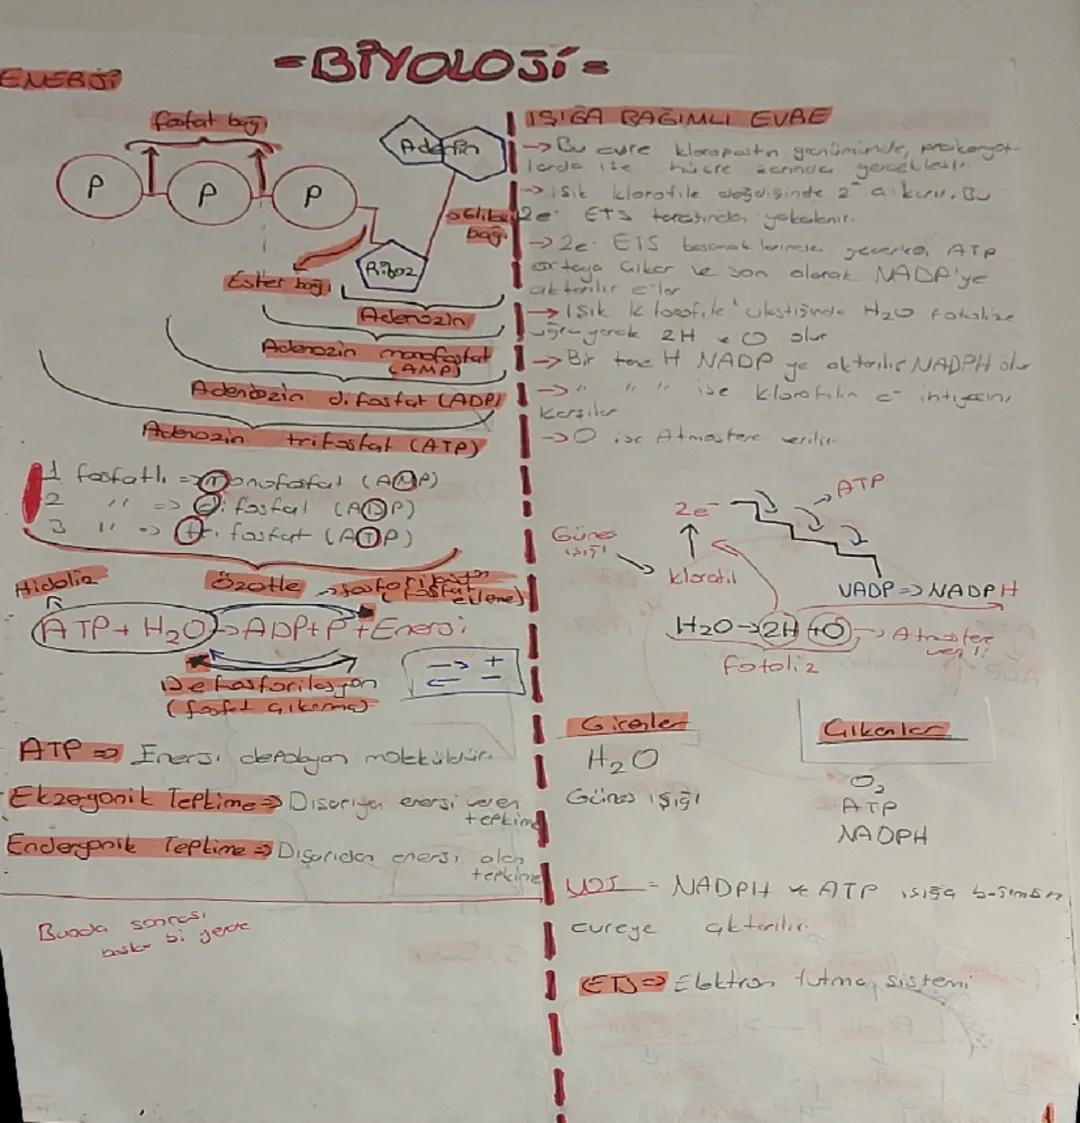 =BİYOLOJİ=
ENERJİ
fosfat bağı
P
P
P
Adenin
Riboz
bağı
Ester bağı
Adenozin
Adenozin monofosfat
(AMP)
Adenozin difosfat (ADP)
Adenozin trifosfat (ATP)
1 fosfatlı => monofosfat (AMP)
2 " => difosfat (ADP)
3 " => trifosfat (ATP)
Özetle
ATP + H2O → ADP + P + Enerji
Defosforilasyon
(fosfat çıkarma)
→ +
← -
ATP => Enerji depolayan moleküldür.
Ekzergonik Tepkime => Dışarıya enerji veren
tepkime
Endergonik Tepkime => Dışarıdan enerji alan
tepkime
Burada sonrası
başka bi yerde
IŞIĞA BAĞIMLI EVRE
→ Bu evre
→ ışık klorofile değdiğinde 2e- çıkarır. Bu
2e- ETS tarafından yakalanır.
→ 2e- ETS basamaklarından geçerken ATP
ortaya çıkar ve son olarak NADP'ye
aktarılır e-ler
→ Işık klorofile ulaştığında H2O fotolize
uğrayarak 2H ve O olur
→ Bir tane H NADP ye aktarılır NADPH olur
→ " " " ise klorofilin e- ihtiyacını
karşılar
→ O ise Atmosfere verilir.
ATP
2e-
Güneş
ışığı
klorofil
NADP => NADPH
H2O → 2H + O → Atmosfere
verilir
fotoliz
Girenler
H2O
Güneş ışığı
Çıkanlar
O2
ATP
NADPH
NOT = NADPH ve ATP ışığa bağımsız
evreye aktarılır.
ETS => Elektron tutma sistemi